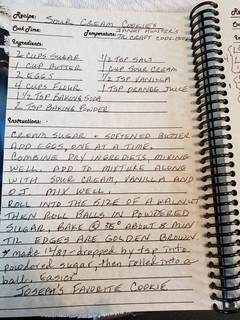 Recipe: SOUR CREAM COOKIES
Cook Time: Temperature: JANET HUNTER'S
TX CRAFT COOK BOOK
Ingredients:
2 CUPS SUGAR 1/2 TSP SALT
1 CUP BUTTER 1 CUP SOUR CREAM
2 EGGS 1/2 TSP VANILLA
4 CUPS FLOUR 1 TSP ORANGE JUICE
1 1/2 TSP BAKING SODA
2 TSP BAKING POWDER
Instructions:
CREAM SUGAR & SOFTENED BUTTER
ADD EGGS, ONE AT A TIME.
COMBINE DRY INGREDIETS, MIXING
WELL. ADD TO MIXTURE ALONG
WITH SOUR CREAM, VANILLA AND
O.J. MIX WELL.
ROLL INTO THE SIZE OF A WALNUT
THEN ROLL BALLS IN POWDERED
SUGAR, BAKE @ 350° ABOUT 8 MIN
TIL EDGES ARE GOLDEN BROWN.
* made 1987 - dropped by tsp into
powdered sugar, then rolled into a
ball. Easier
JOSEPH'S FAVORITE COOKIE